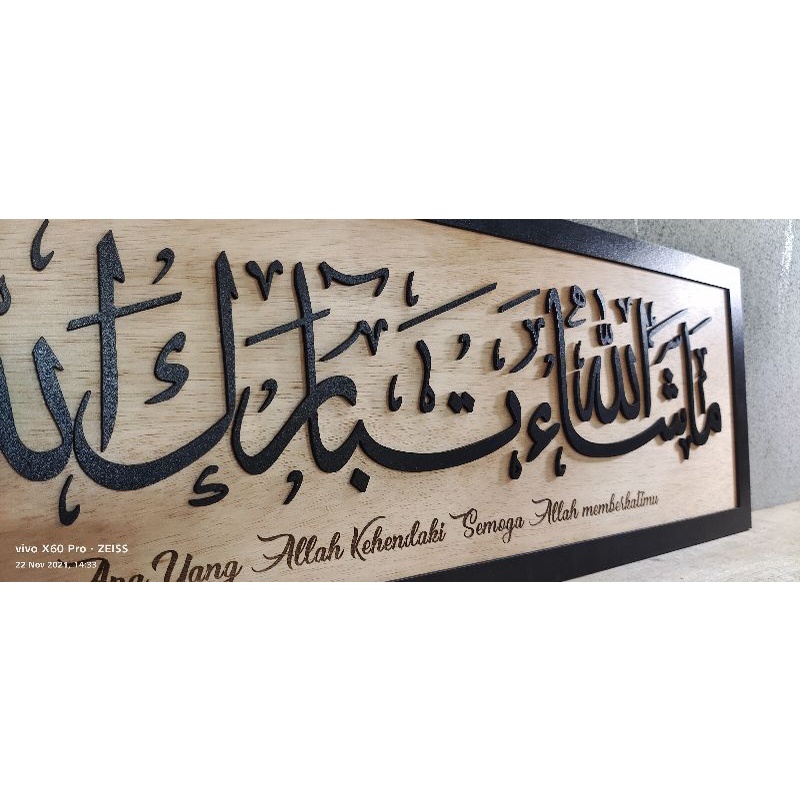 ما شاء الله تبارك الله
Apa Yang Allah Kehendaki Semoga Allah memberkatimu
vivo X60 Pro · ZEISS
22 Nov 2021, 14:33